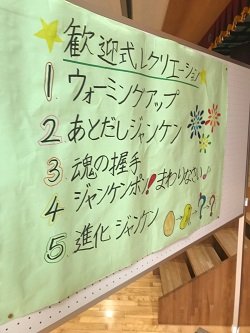 歓迎式レクリエーション
1. ウォーミングアップ
2 あとだしジャンケン
3. 魂の握手
4 ジャンケンポン!まわりなさい♪
5. 進化ジャンケン ??